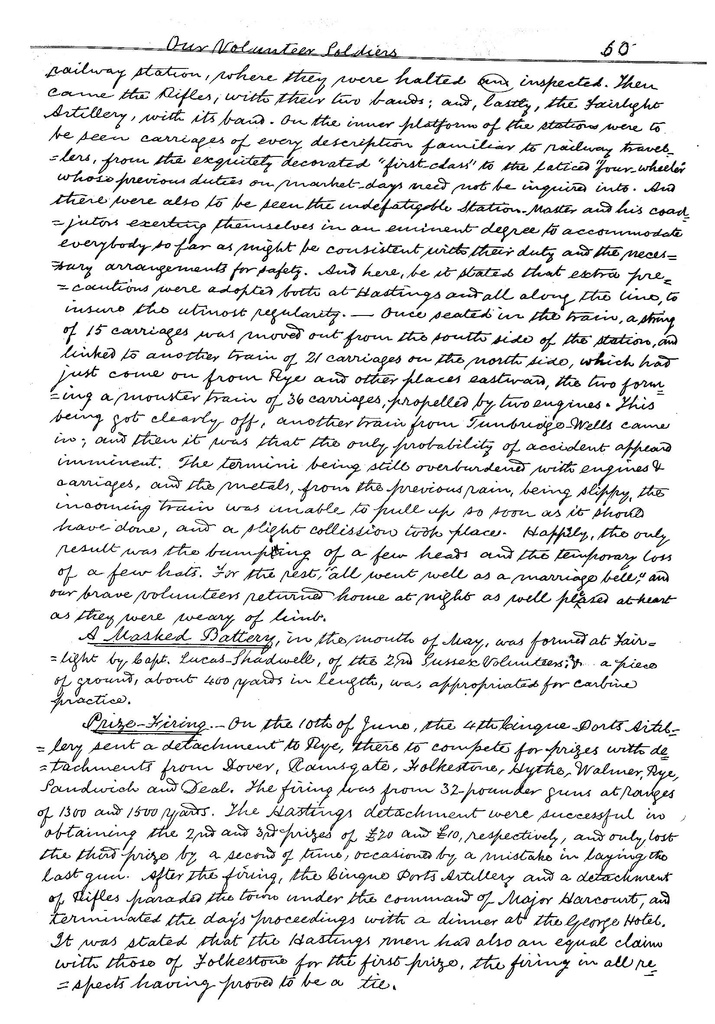 Our Volunteer Soldiers 60
railway station, where they were halted and inspected. Then
came the Rifles, with their two bands; and, lastly, the Fairlight
Artillery, with its band. On the inner platform of the stations were to
be seen carriages of every description familiar to railway travel-
=lers, from the exquitety decorated "first-class" to the laticed "four-wheeler"
whose previous duties on market-days need not be inquired into. And
there were also to be seen the indefatigable Station-Master and his coad-
=jutors exerting themselves in an eminent degree to accommodate
everybody so far as might be consistent with their duty and the neces=
=sary arrangements for safety. And here, be it stated that extra pre=
=cautions were adopted both at Hastings and all along the line, to
insure the utmost regularity. — Once seated in the train, a string
of 15 carriages was moved out from the south side of the station, and
linked to another train of 21 carriages on the north side, which had
just come on from Rye and other places eastward, the two form-
=ing a monster train of 36 carriages, propelled by two engines. This
being got clearly off, another train from Tunbridge Wells came
in; and then it was that the only probability of accident appeard
imminent. The termini being still overburdened with engines &
carriages, and the metals, from the previous rain, being slippy, the
incoming train was unable to pull up so soon as it should
have done, and a slight collission took place. Happily, the only
result was the bumping of a few heads and the temporary loss
of a few hats. For the rest, "all went well as a marriage bell," and
our brave volunteers returned home at night as well pleased at heart
as they were weary of limb.
A Masked Battery, in the month of May, was formed at Fair=
=light by Capt. Lucas-Shadwell, of the 2nd Sussex Volunteers; a piece
of ground, about 400 yards in length, was appropriated for carbine
practice.
Prize-Firing. — On the 10th of June, the 4th Cinque Ports Artil-
=lery sent a detachment to Rye, there to compete for prizes with de
=tachments from Dover, Ramsgate, Folkestone, Hythe, Walmer, Rye,
Sandwich and Deal. The firing was from 32-pounder guns at ranges
of 1300 and 1500 yards. The Hastings detachment were successful in
obtaining the 2nd and 3rd prizes of £20 and £10, respectively, and only lost
the third prize by a second of time, occasioned by a mistake in laying the
last gun. After the firing, the Cinque Ports Artillery and a detachment
of Rifles paraded the town under the command of Major Harcourt, and
terminated the days proceedings with a dinner at the George Hotel.
It was stated that the Hastings men had also an equal claim
with those of Folkestone for the first prize, the firing in all re
=spects having proved to be a tie.